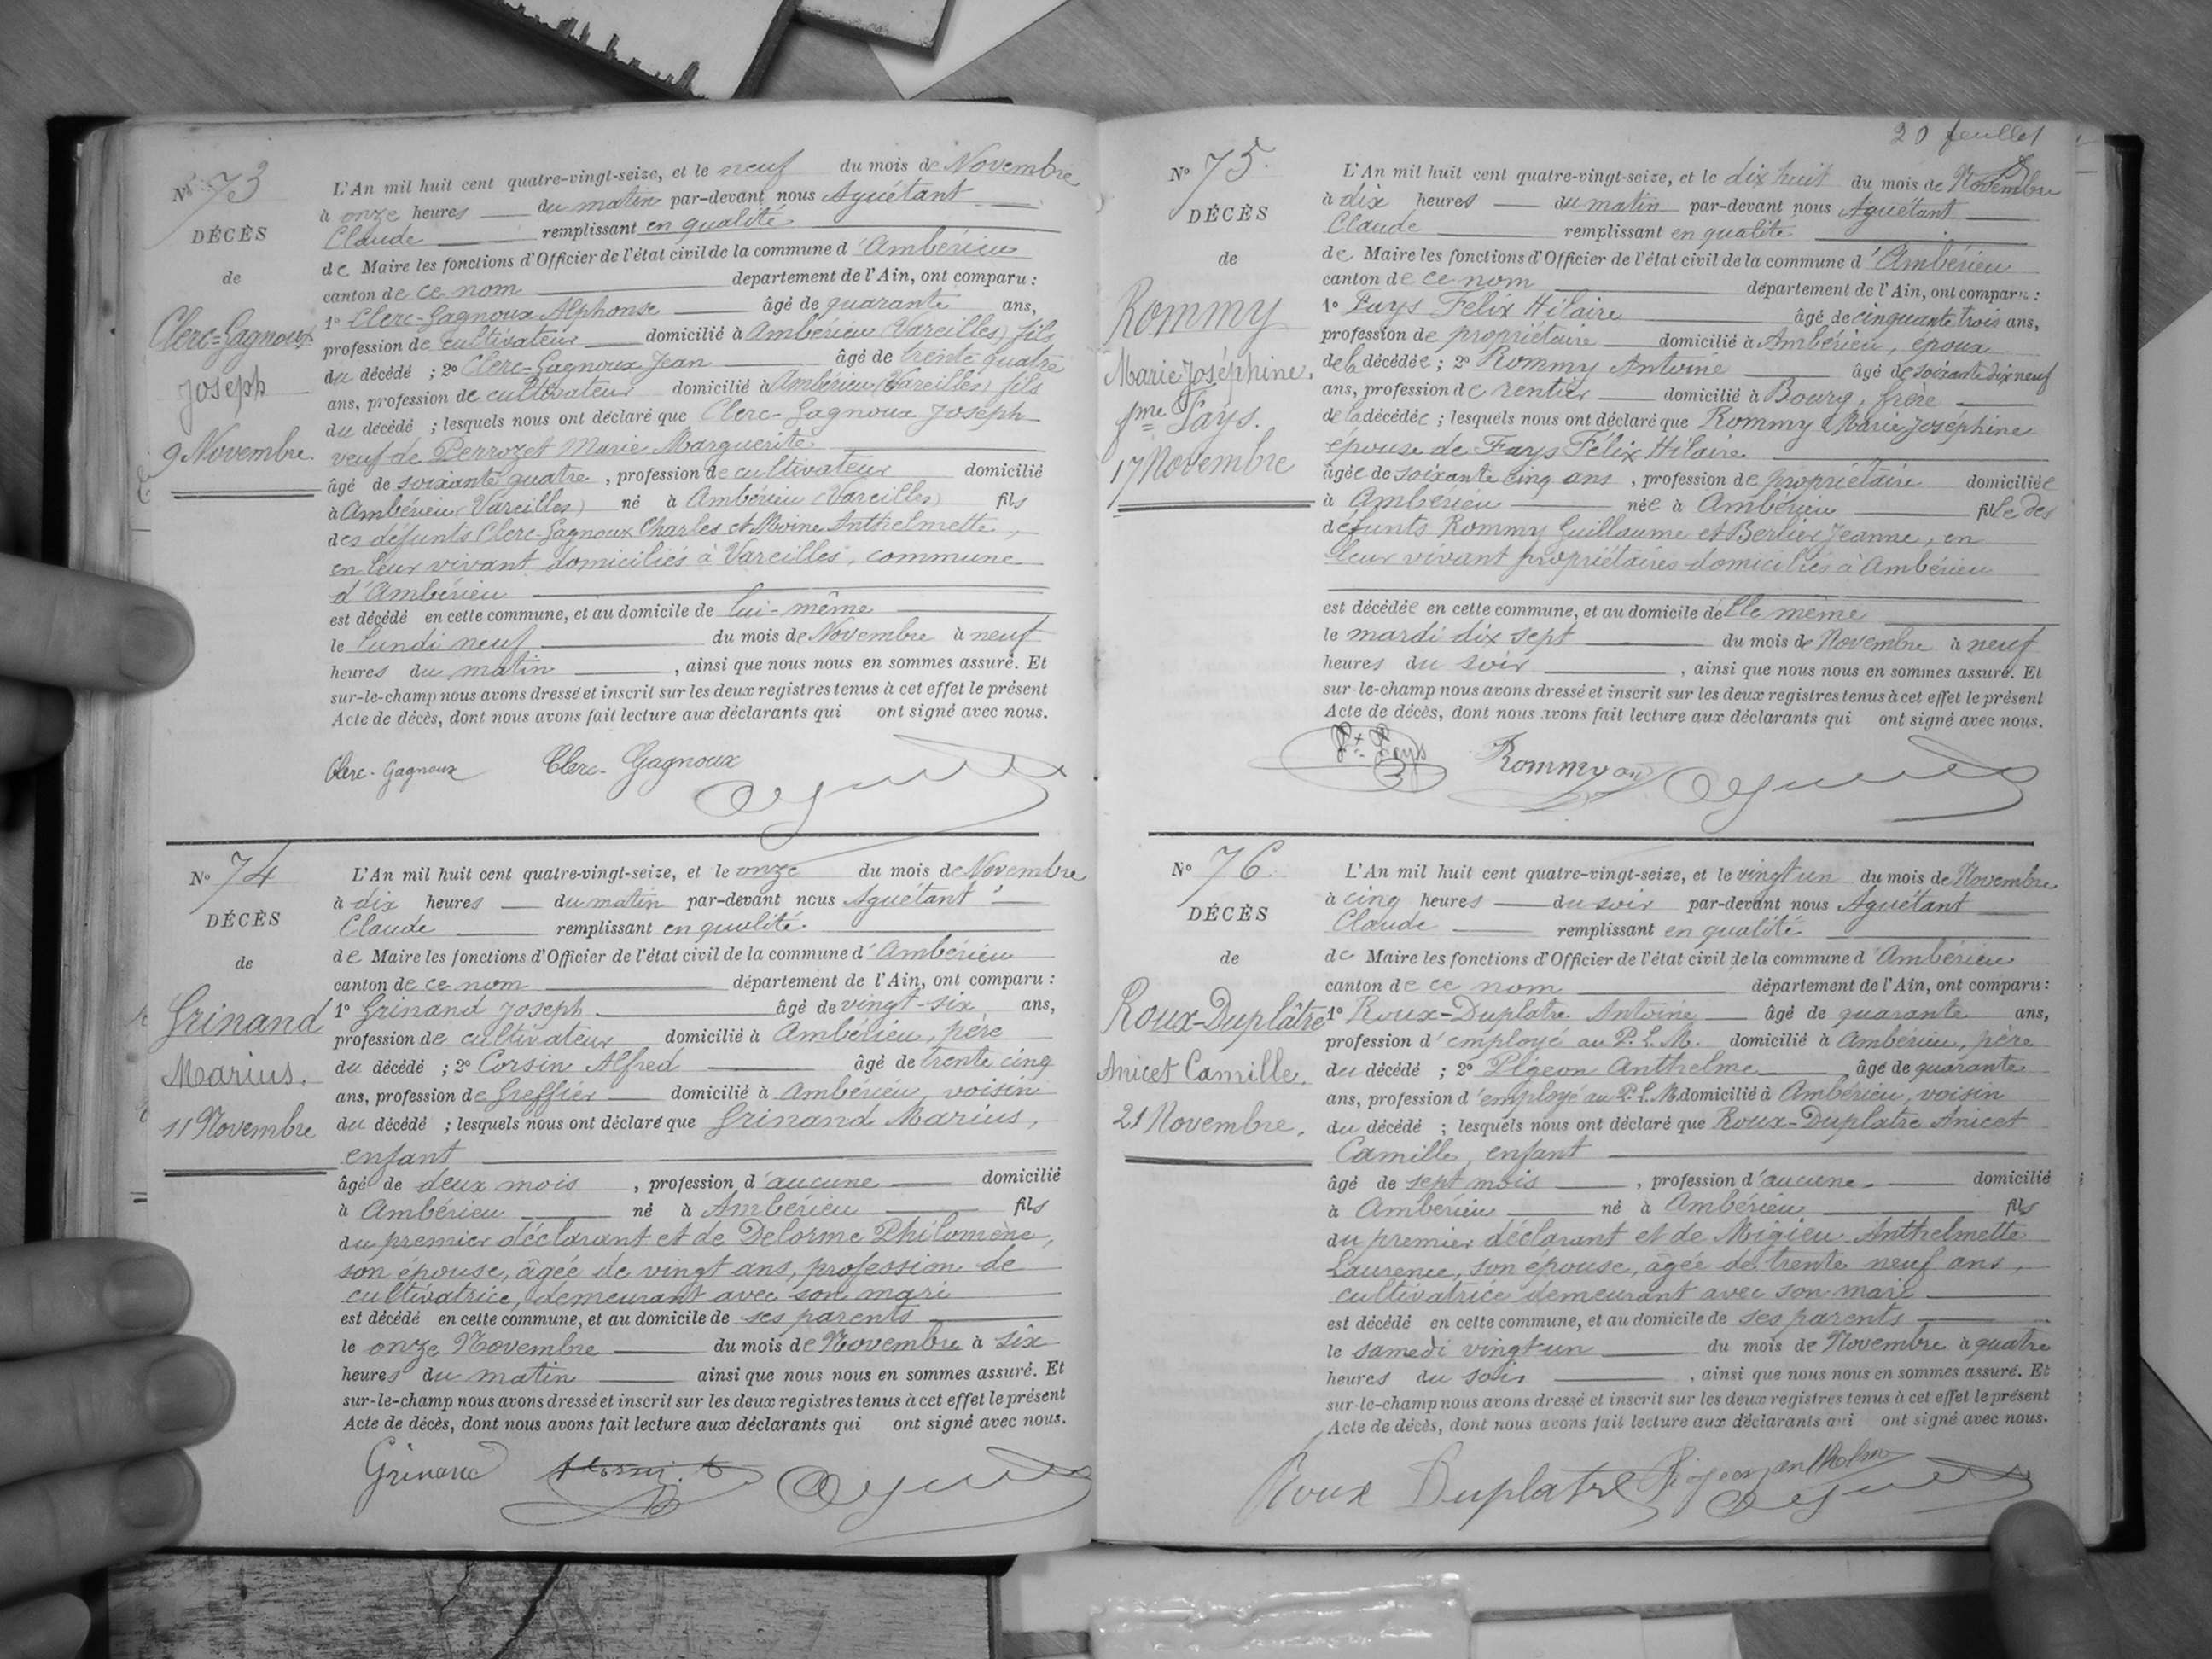 Nº 73
DÉCÈS
de
Clerc-Gagnoux
Joseph
9 Novembre
L'An mil huit cent quatre-vingt-seize, et le neuf du mois de Novembre
à onze heures du matin par-devant nous Aguétant
Claude remplissant en qualité
de Maire les fonctions d'Officier de l'état civil de la commune d'Ambérieu
canton de ce nom departement de l'Ain, ont comparu :
1º Clerc-Gagnoux Alphonse âgé de quarante ans,
profession de cultivateur domicilié à Ambérieu (Vareilles) fils
du décédé ; 2º Clerc-Gagnoux Jean âgé de trente quatre
ans, profession de cultivateur domicilié à Ambérieu (Vareilles) fils
du décédé ; lesquels nous ont déclaré que Clerc-Gagnoux Joseph
veuf de Perrozet Marie Marguerite
âgé de soixante quatre , profession de cultivateur domicilié
à Ambérieu (Vareilles) né à Ambérieu (Vareilles) fils
des défunts Clerc-Gagnoux Charles et Moine Anthelmette,
en leur vivant domiciliés à Vareilles, commune
d'Ambérieu
est décédé en cette commune, et au domicile de lui-même
le lundi neuf du mois de Novembre à neuf
heures du matin , ainsi que nous nous en sommes assuré. Et
sur-le-champ nous avons dressé et inscrit sur les deux registres tenus à cet effet le présent
Acte de décès, dont nous avons fait lecture aux déclarants qui ont signé avec nous.
Clerc-Gagnoux Clerc-Gagnoux
Nº 74
DÉCÈS
de
Grinand
Marius.
11 Novembre
L'An mil huit cent quatre-vingt-seize, et le onze du mois de Novembre
à dix heures du matin par-devant nous Aguétant
Claude remplissant en qualité
de Maire les fonctions d'Officier de l'état civil de la commune d'Ambérieu
canton de ce nom département de l'Ain, ont comparu :
1º Grinand Joseph âgé de vingt-six ans,
profession de cultivateur domicilié à Ambérieu, père
du décédé ; 2º Corsin Alfred âgé de trente cinq
ans, profession de Greffier domicilié à Ambérieu, voisin
du décédé ; lesquels nous ont déclaré que Grinand Marius,
enfant
âgé de deux mois , profession d'aucune domicilié
à Ambérieu né à Ambérieu fils
du premier déclarant et de Delorme Philomène,
son épouse, âgée de vingt ans, profession de
cultivatrice, demeurant avec son mari
est décédé en cette commune, et au domicile de ses parents
le onze Novembre du mois de Novembre à six
heures du matin ainsi que nous nous en sommes assuré. Et
sur-le-champ nous avons dressé et inscrit sur les deux registres tenus à cet effet le présent
Acte de décès, dont nous avons fait lecture aux déclarants qui ont signé avec nous.
Grinand
20 feuillet
Nº 75.
DÉCÈS
de
Rommy
Marie Joséphine,
fme Fays.
17 Novembre
L'An mil huit cent quatre-vingt-seize, et le dix huit du mois de Novembre
à dix heures du matin par-devant nous Aguétant
Claude remplissant en qualité
de Maire les fonctions d'Officier de l'état civil de la commune d'Ambérieu
canton de ce nom département de l'Ain, ont comparu :
1º Fays Felix Hilaire âgé de cinquante trois ans,
profession de propriétaire domicilié à Ambérieu, époux
de la décédée ; 2º Rommy Antoine âgé de soixante dix neuf
ans, profession de rentier domicilié à Bourg, frère
de la décédée ; lesquels nous ont déclaré que Rommy Marie Joséphine
épouse de Fays Félix Hilaire
âgée de soixante cinq ans , profession de propriétaire domiciliée
à Ambérieu née à Ambérieu fille des
défunts Rommy Guillaume et Berlier Jeanne, en
leur vivant propriétaires domiciliés à Ambérieu
est décédée en cette commune, et au domicile d'elle même
le mardi dix sept du mois de Novembre à neuf
heures du soir , ainsi que nous nous en sommes assuré. Et
sur-le-champ nous avons dressé et inscrit sur les deux registres tenus à cet effet le présent
Acte de décès, dont nous avons fait lecture aux déclarants qui ont signé avec nous.
Fx Fays Rommy an
Nº 76.
DÉCÈS
de
Roux-Duplâtre
Anicet Camille.
21 Novembre.
L'An mil huit cent quatre-vingt-seize, et le vingt un du mois de Novembre
à cinq heures du soir par-devant nous Aguétant
Claude remplissant en qualité
de Maire les fonctions d'Officier de l'état civil de la commune d'Ambérieu
canton de ce nom département de l'Ain, ont comparu :
1º Roux-Duplatre Antoine âgé de quarante ans,
profession d'employé au P. L. M. domicilié à Ambérieu, père
du décédé ; 2º Pigeon Anthelme âgé de quarante
ans, profession d'employé au P. L. M. domicilié à Ambérieu, voisin
du décédé ; lesquels nous ont déclaré que Roux-Duplatre Anicet
Camille, enfant
âgé de sept mois , profession d'aucune. domicilié
à Ambérieu né à Ambérieu fils
du premier déclarant et de Migieu Anthelmette
Laurence, son épouse, âgée de trente neuf ans,
cultivatrice demeurant avec son mari
est décédé en cette commune, et au domicile de ses parents
le samedi vingt un du mois de Novembre à quatre
heures du soir , ainsi que nous nous en sommes assuré. Et
sur-le-champ nous avons dressé et inscrit sur les deux registres tenus à cet effet le présent
Acte de décès, dont nous avons fait lecture aux déclarants qui ont signé avec nous.
Roux Duplatre Pigeon anthelme